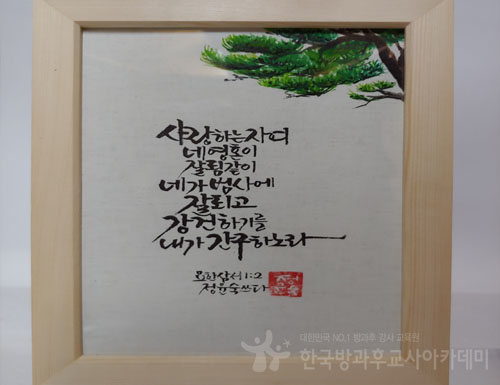 사랑하는자여
네영혼이
잘됨같이
네가범사에
잘되고
강건하기를
내가간구하노라
요한삼서1:2
정윤숙쓰다
대한민국 NO.1 방과후 강사 교육원
한국방과후교사아카데미